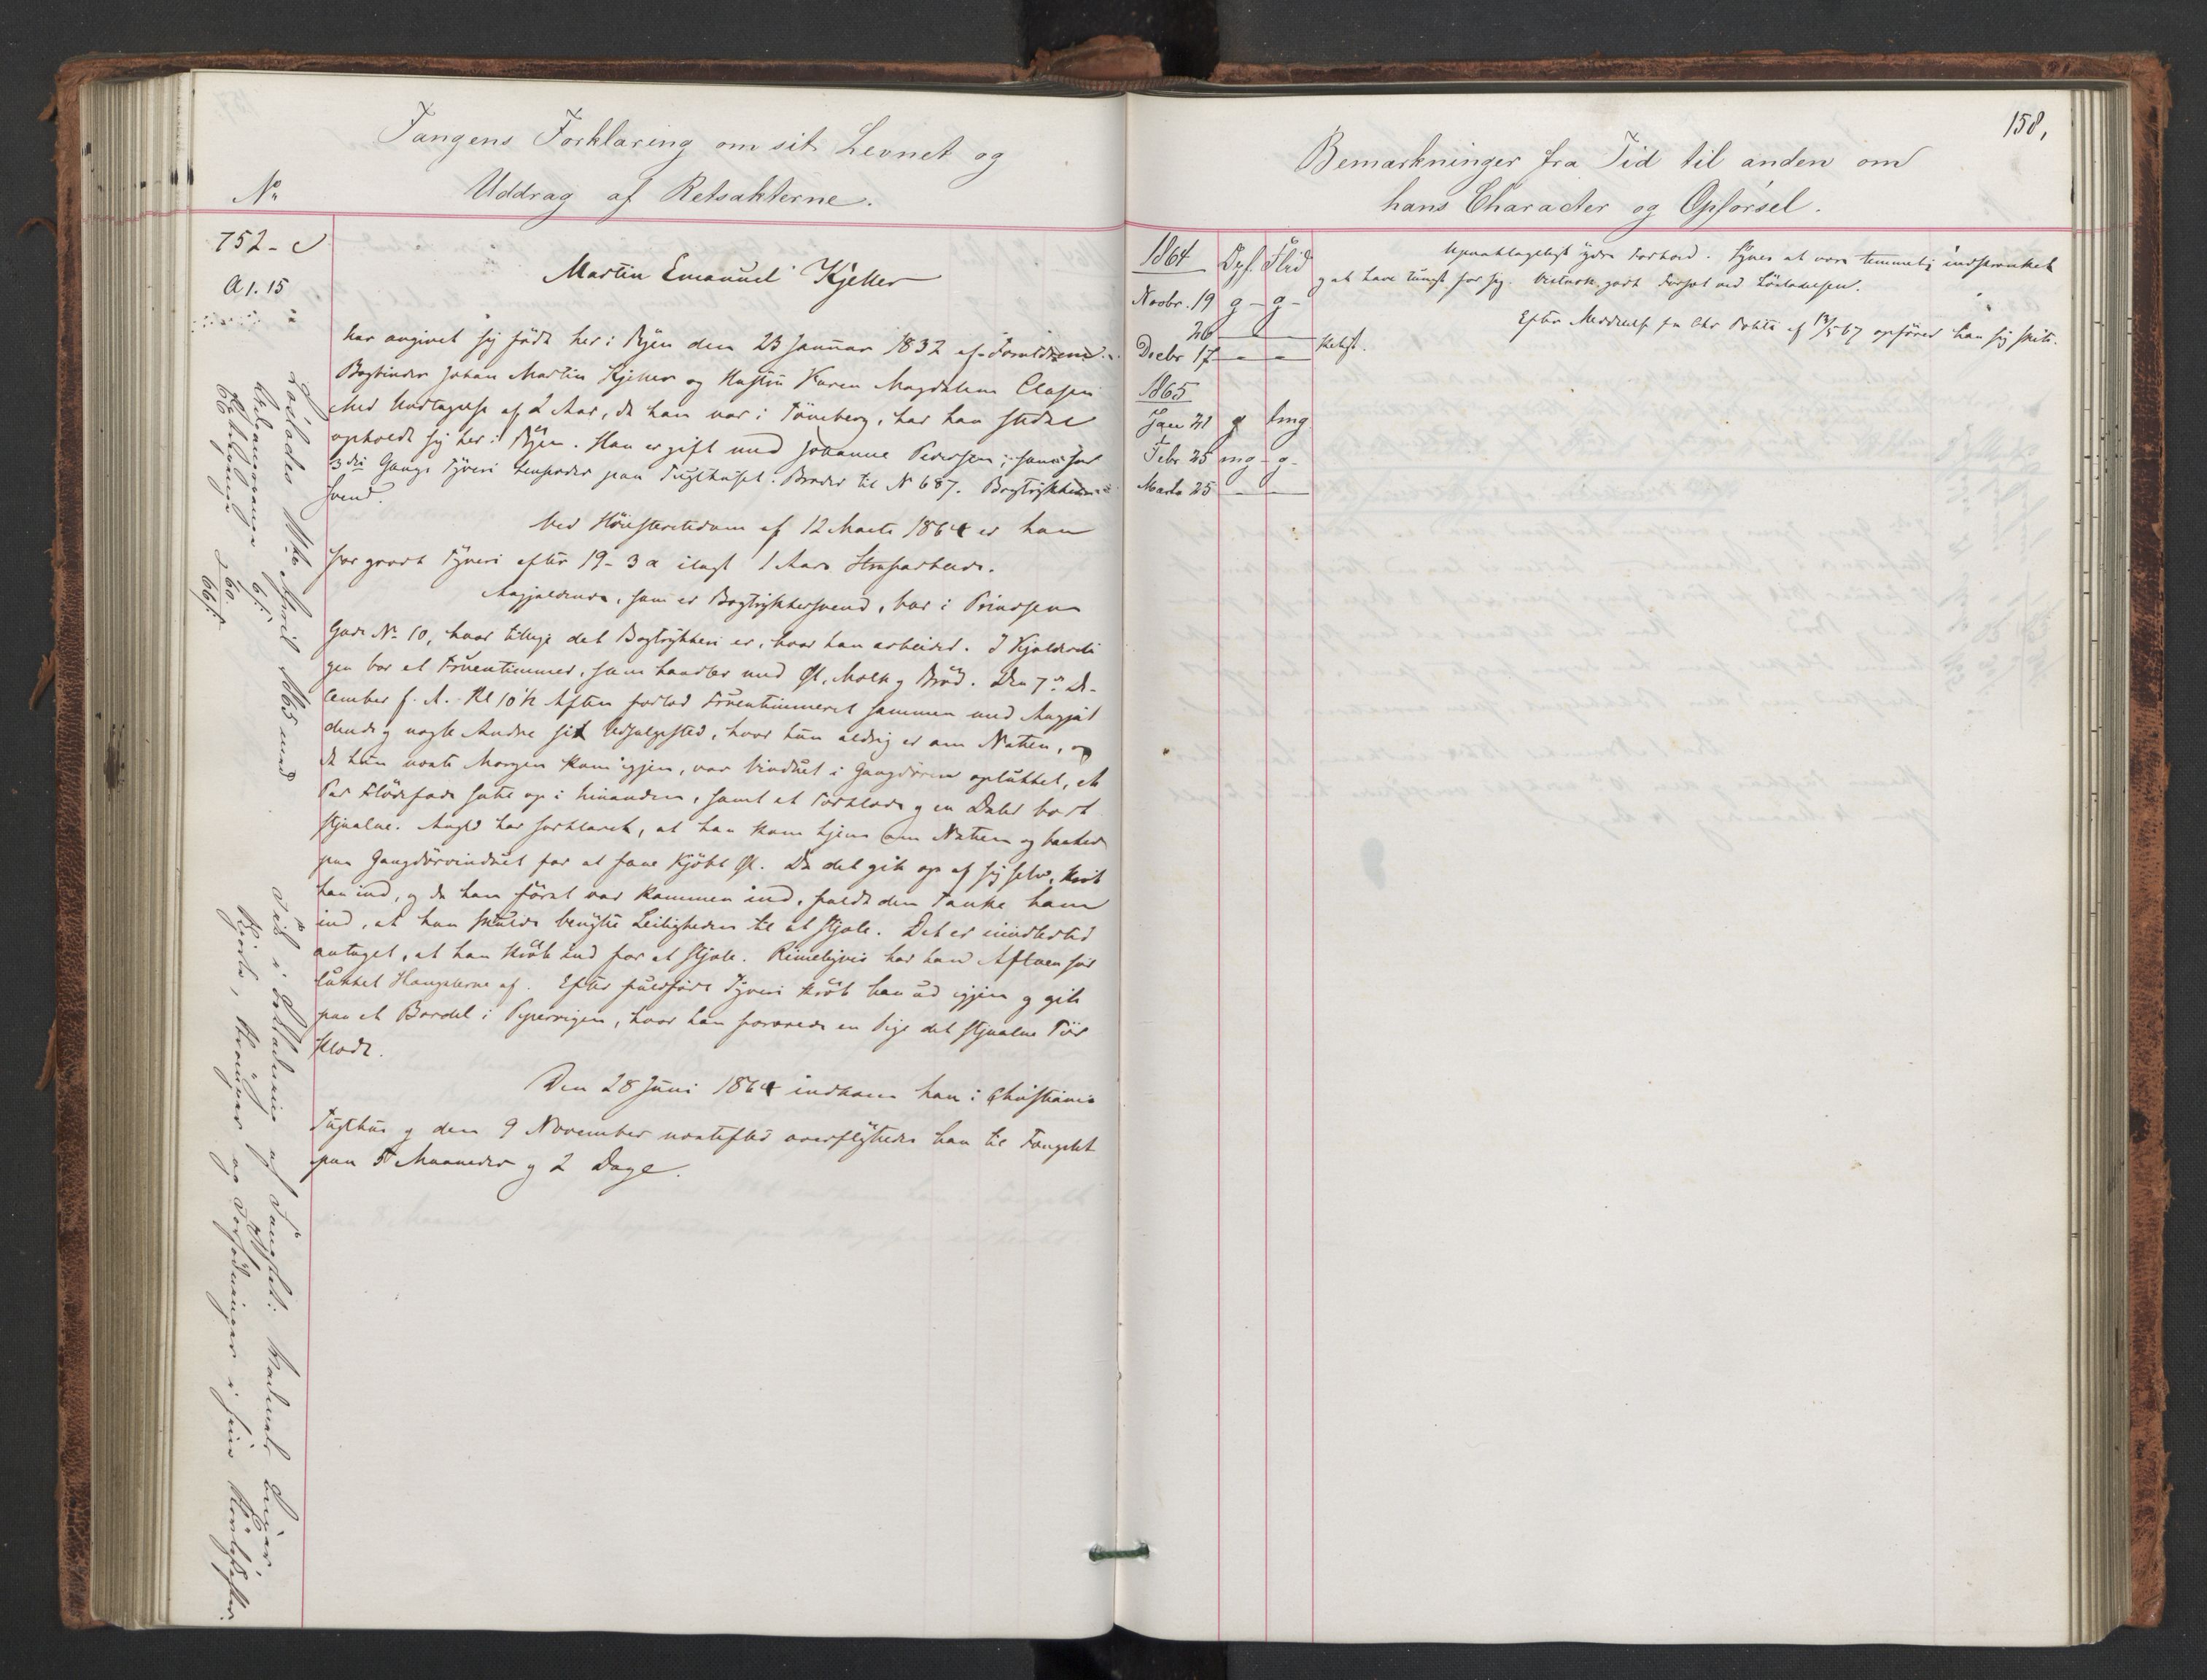 Fangens Forklaring om sit Levnet og
Uddrag af Retsakterne.
No
752-
A 1. 15
Martin Emanuel Kjeller
har angivet sig født her i Byen den 23 Januar 1832 af Forældrene
Bogbinder Johan Martin Kjeller og Hustru Karen Magdalene Clasen
Med Undtagelse af 2 Aar, da han var i Tönsberg, har han stedse
opholdt sig her i Byen. Han er gift med Johanne Pedersen,
3die Gangs Tyveri paa Tugthuset. Broder til N 687. Bogtrykker
svend.
Ved Höiesteretsdom af 12 Marts 1864 er han
for grovt Tyveri efter 19-3 a ilagt 1 Aars Strafarbeide.
Angjældende, som er Bogtrykkersvend, bor i Prindsens
Gade No 10, hvor tillige det Bogtrykkeri er, hvor han arbeider. I Kjelderleili
gen bor et Fruentimmer, som handler med Øl, Melk og Bröd. Den 7de De-
cember f. A. Kl 10½ Aften forlod Fruentimmeret sammen med Angjæl
dende og nogle Andre sit Udsalgssted, hvor hun aldrig er om Natten, og
da hun næste Morgen kom igjen, var Vinduet i Gangdören oplukket, et
Par Flödefade satte op i hinanden, samt et Törklæde og en Daler bort
stjaalne. Angjld har forklaret, at han kom hjem om Natten og bankede
paa Gangdörvinduet for at faae kjöbt Øl. Da det gik op af sig selv, kröb
han ind, og da han först var kommen ind, faldt den Tanke ham
ind, at han skulde benytte Leiligheden til at stjæle. Det er imidlertid
antaget, at han kröb ind for at stjæle. Rimeligvis har han Aftenen för
lukket Haspen af. Efter fuldført Tyveri kröb han ud igjen og gik
paa et Bordel i Pipervigen, hvor han forærede en Pige det stjaalne Tör
klæde.
Den 28 Juni 1864 indkom han i Christiania
Tugthus og den 9 November næstefter overflyttedes han til Fængslet
paa 5 Maaneder og 2 Dage.
Löslades 11te April 1865 med
Fik i Beklædning af Fængslet:
158,
Bemærkninger fra Tid til anden om
hans Character og Opførsel.
1864 Opf. Flid
Novbr. 19 g - g -
26 - -
Decbr 17 - -
1865
Jan 21 g tmg
Febr 25 mg - g -
Marts 25 - -
Upaaklageligt ydre Forhold. Synes at være temmelig indskrænket
og at have tungt for sig. godt Forsæt ved Lösladelsen.
Efter Meddelelse fra Chr Politi af 13/5 67 opförer han sig skik-
keligt.